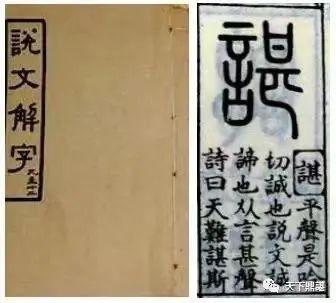 說文解字
諶
諶 平聲是吟
切誠也説文誠
諦也从言甚聲
詩曰天難諶斯
天下鼎諶